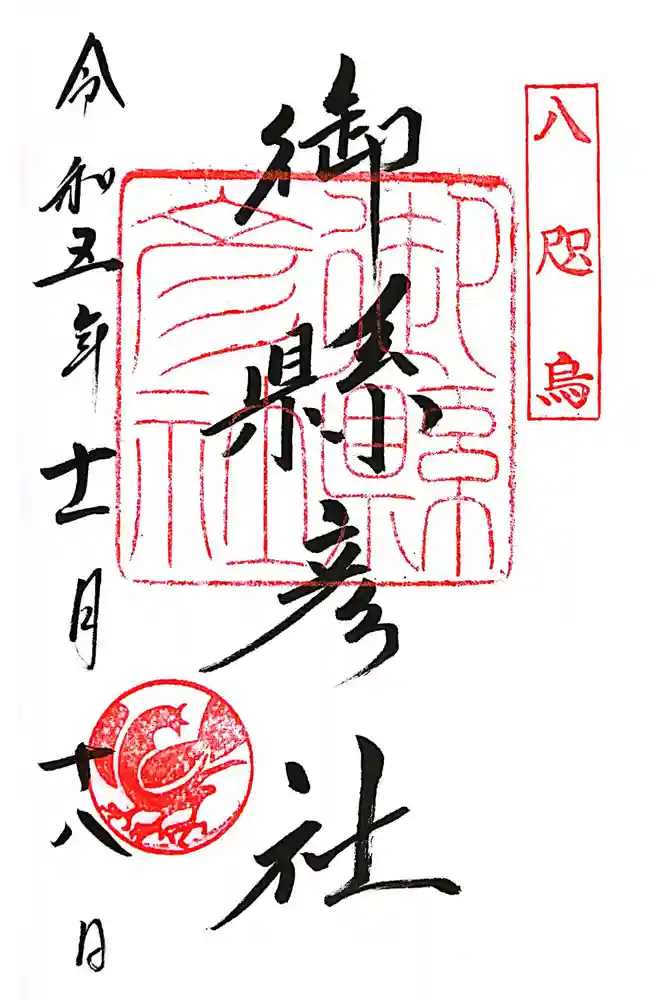 八咫烏
御縣彦社
御縣
彦社
令和五年十一月十八日